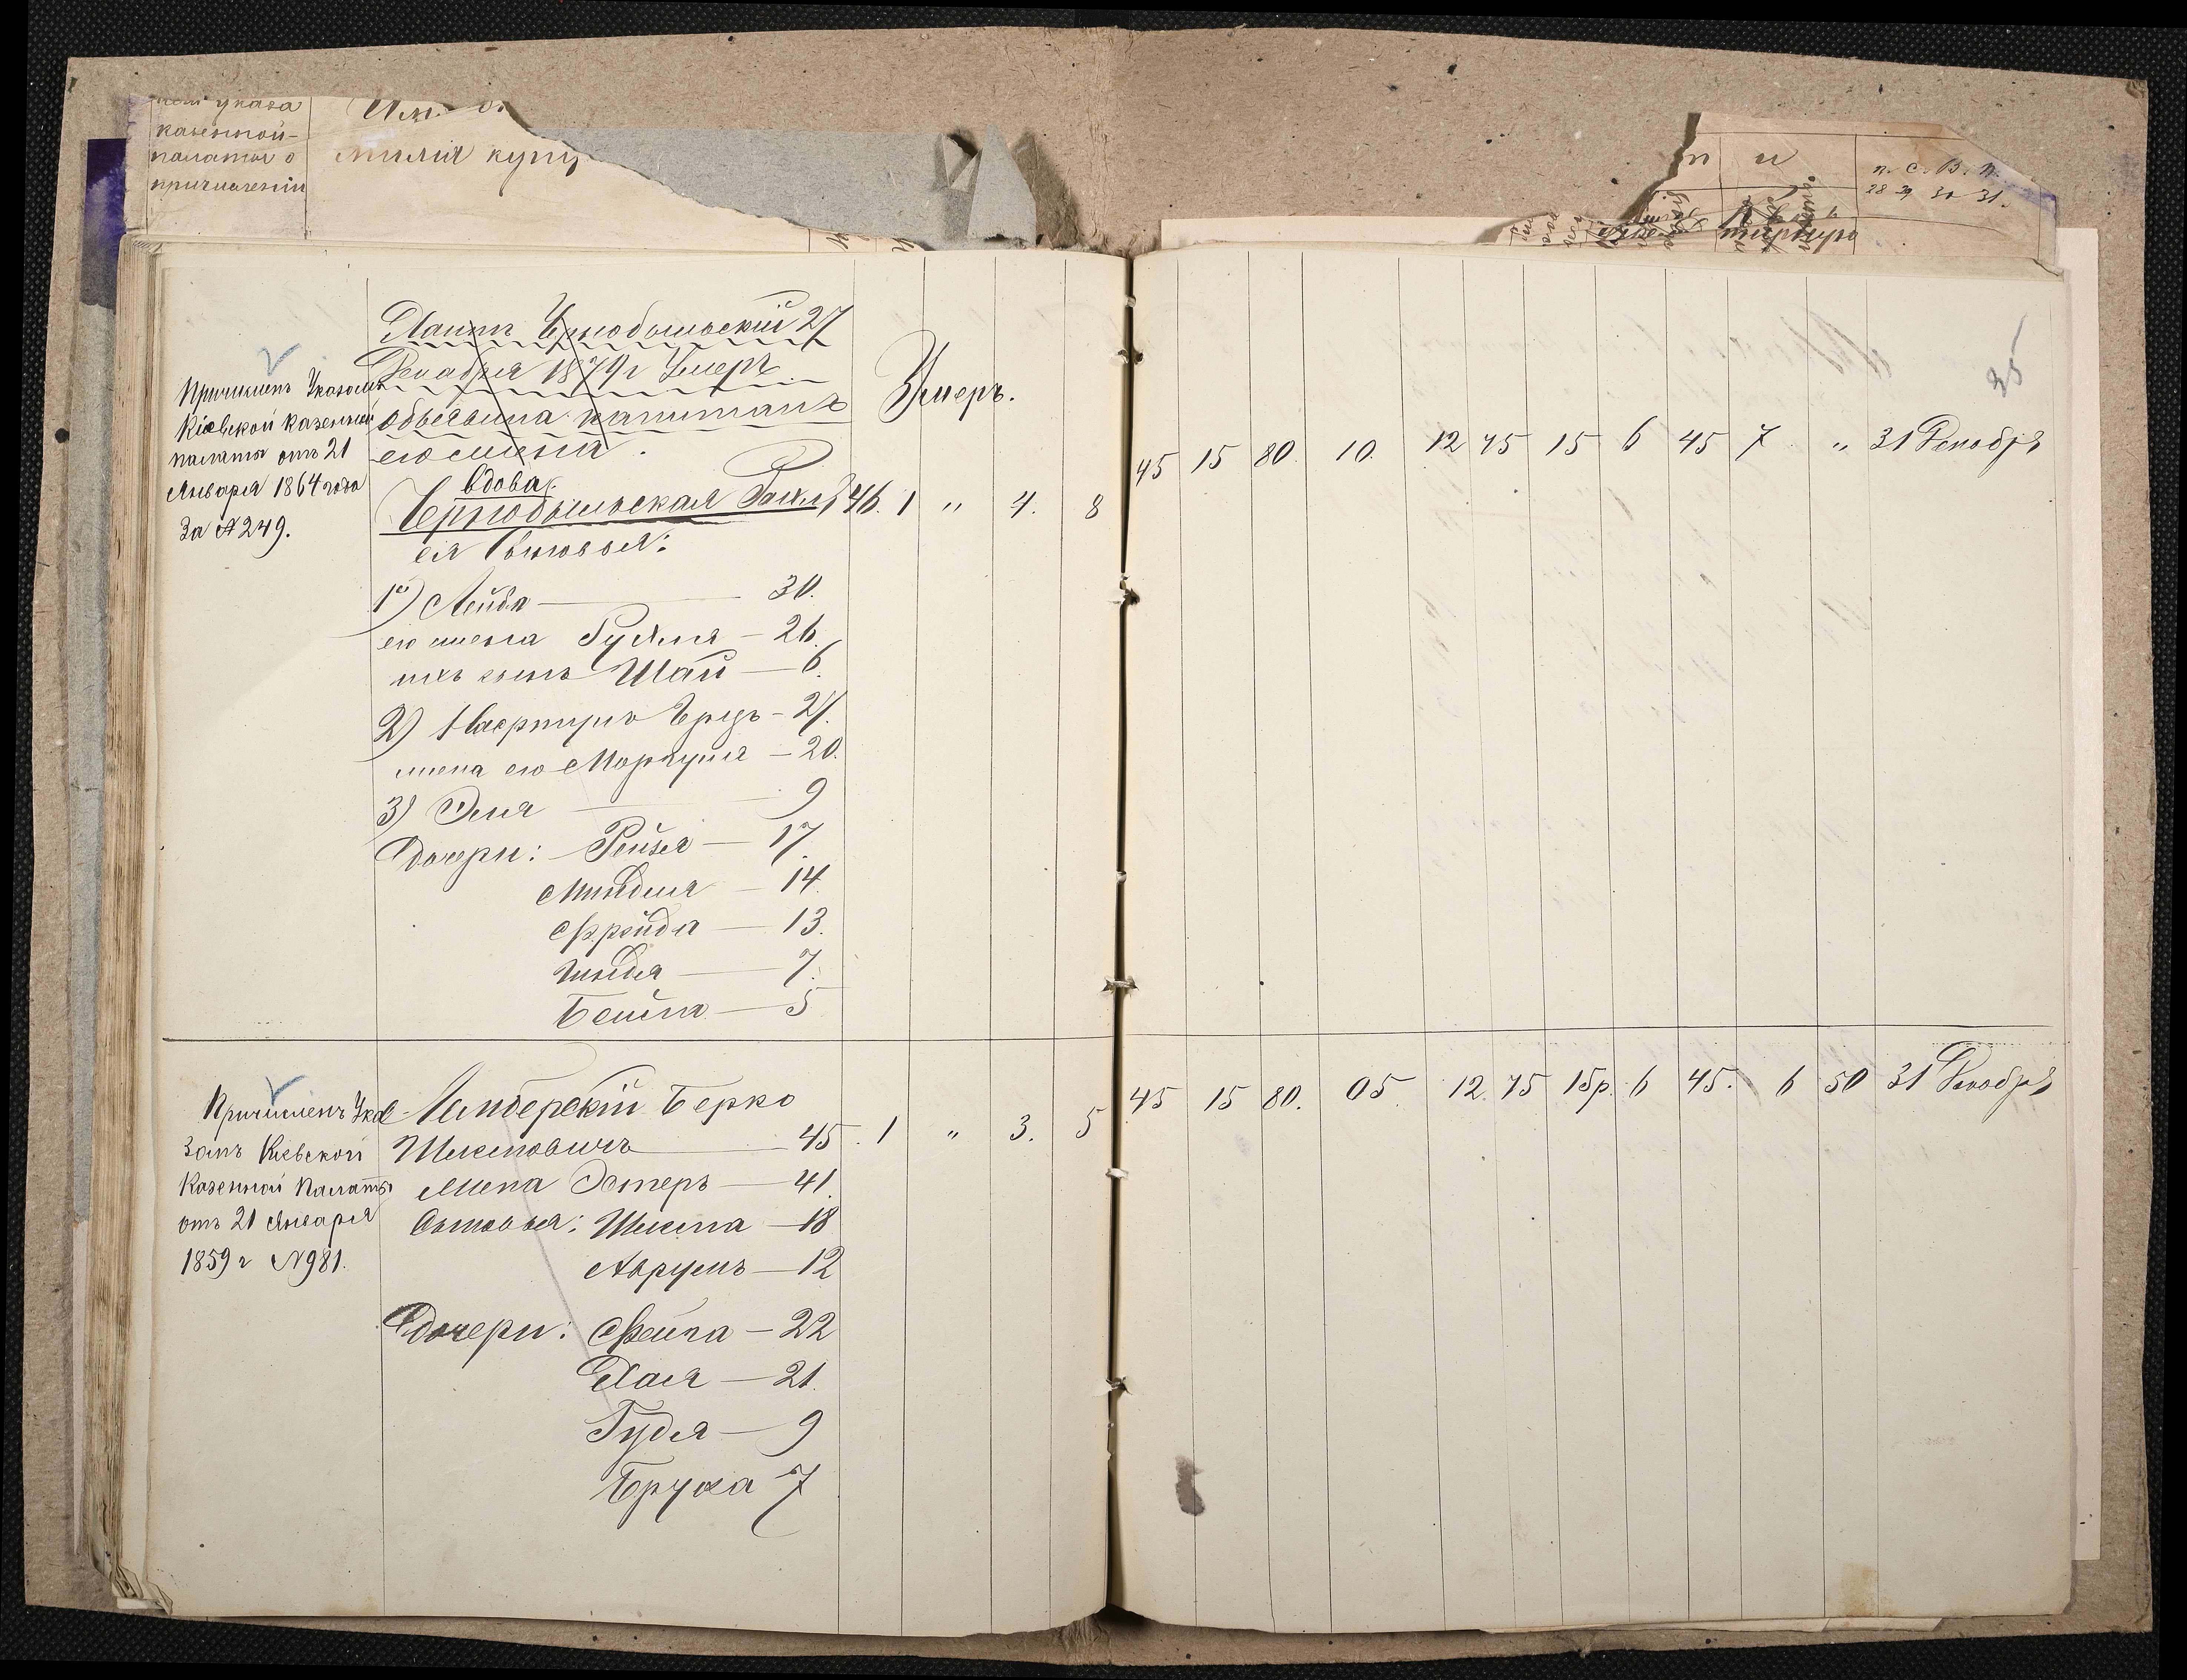 указа
казенной
палаты о
причисленіи
милія купц
п и
п. С. В. п.
28 29 30 31.
25
Причисленъ Указомъ
Кіевской казенной
палаты отъ 21
Января 1864 года
За № 249.
Хаимъ Чернобыльскій 27
Декабря 1879 г Умеръ
объявила капиталъ
его жена.
Умеръ.
вдова
Чернобыльская Рахль 46. 1 „ 4. 8 45 15 80 10. 12 75 15 6 45 7 „ 31 Декабря
ея Сыновья:
1) Лейба — 30.
его жена Рухля — 26.
ихъ сынъ Шая — 6.
2) Берь — 27.
жена его — 20.
3) Эля — 9
Дочери: Рейзя — 17.
Миндля — 14.
Фрейда — 13.
7.
Бейла — 5
Причисленъ Ука
зомъ Кіевской
Казенной Палаты
отъ 21 Января
1859 г № 981.
Ламберскій Берко
Шмеловичъ — 45. 1 „ 3. 5 45 15 80. 05 12. 75 15р. 6 45. 6 50 31 Декабря
Жена Эстеръ — 41.
Сыновья: — 18
Аврумъ — 12
Дочери: Фейга — 22
Хая — 21.
Гудя — 9
Бруха 7